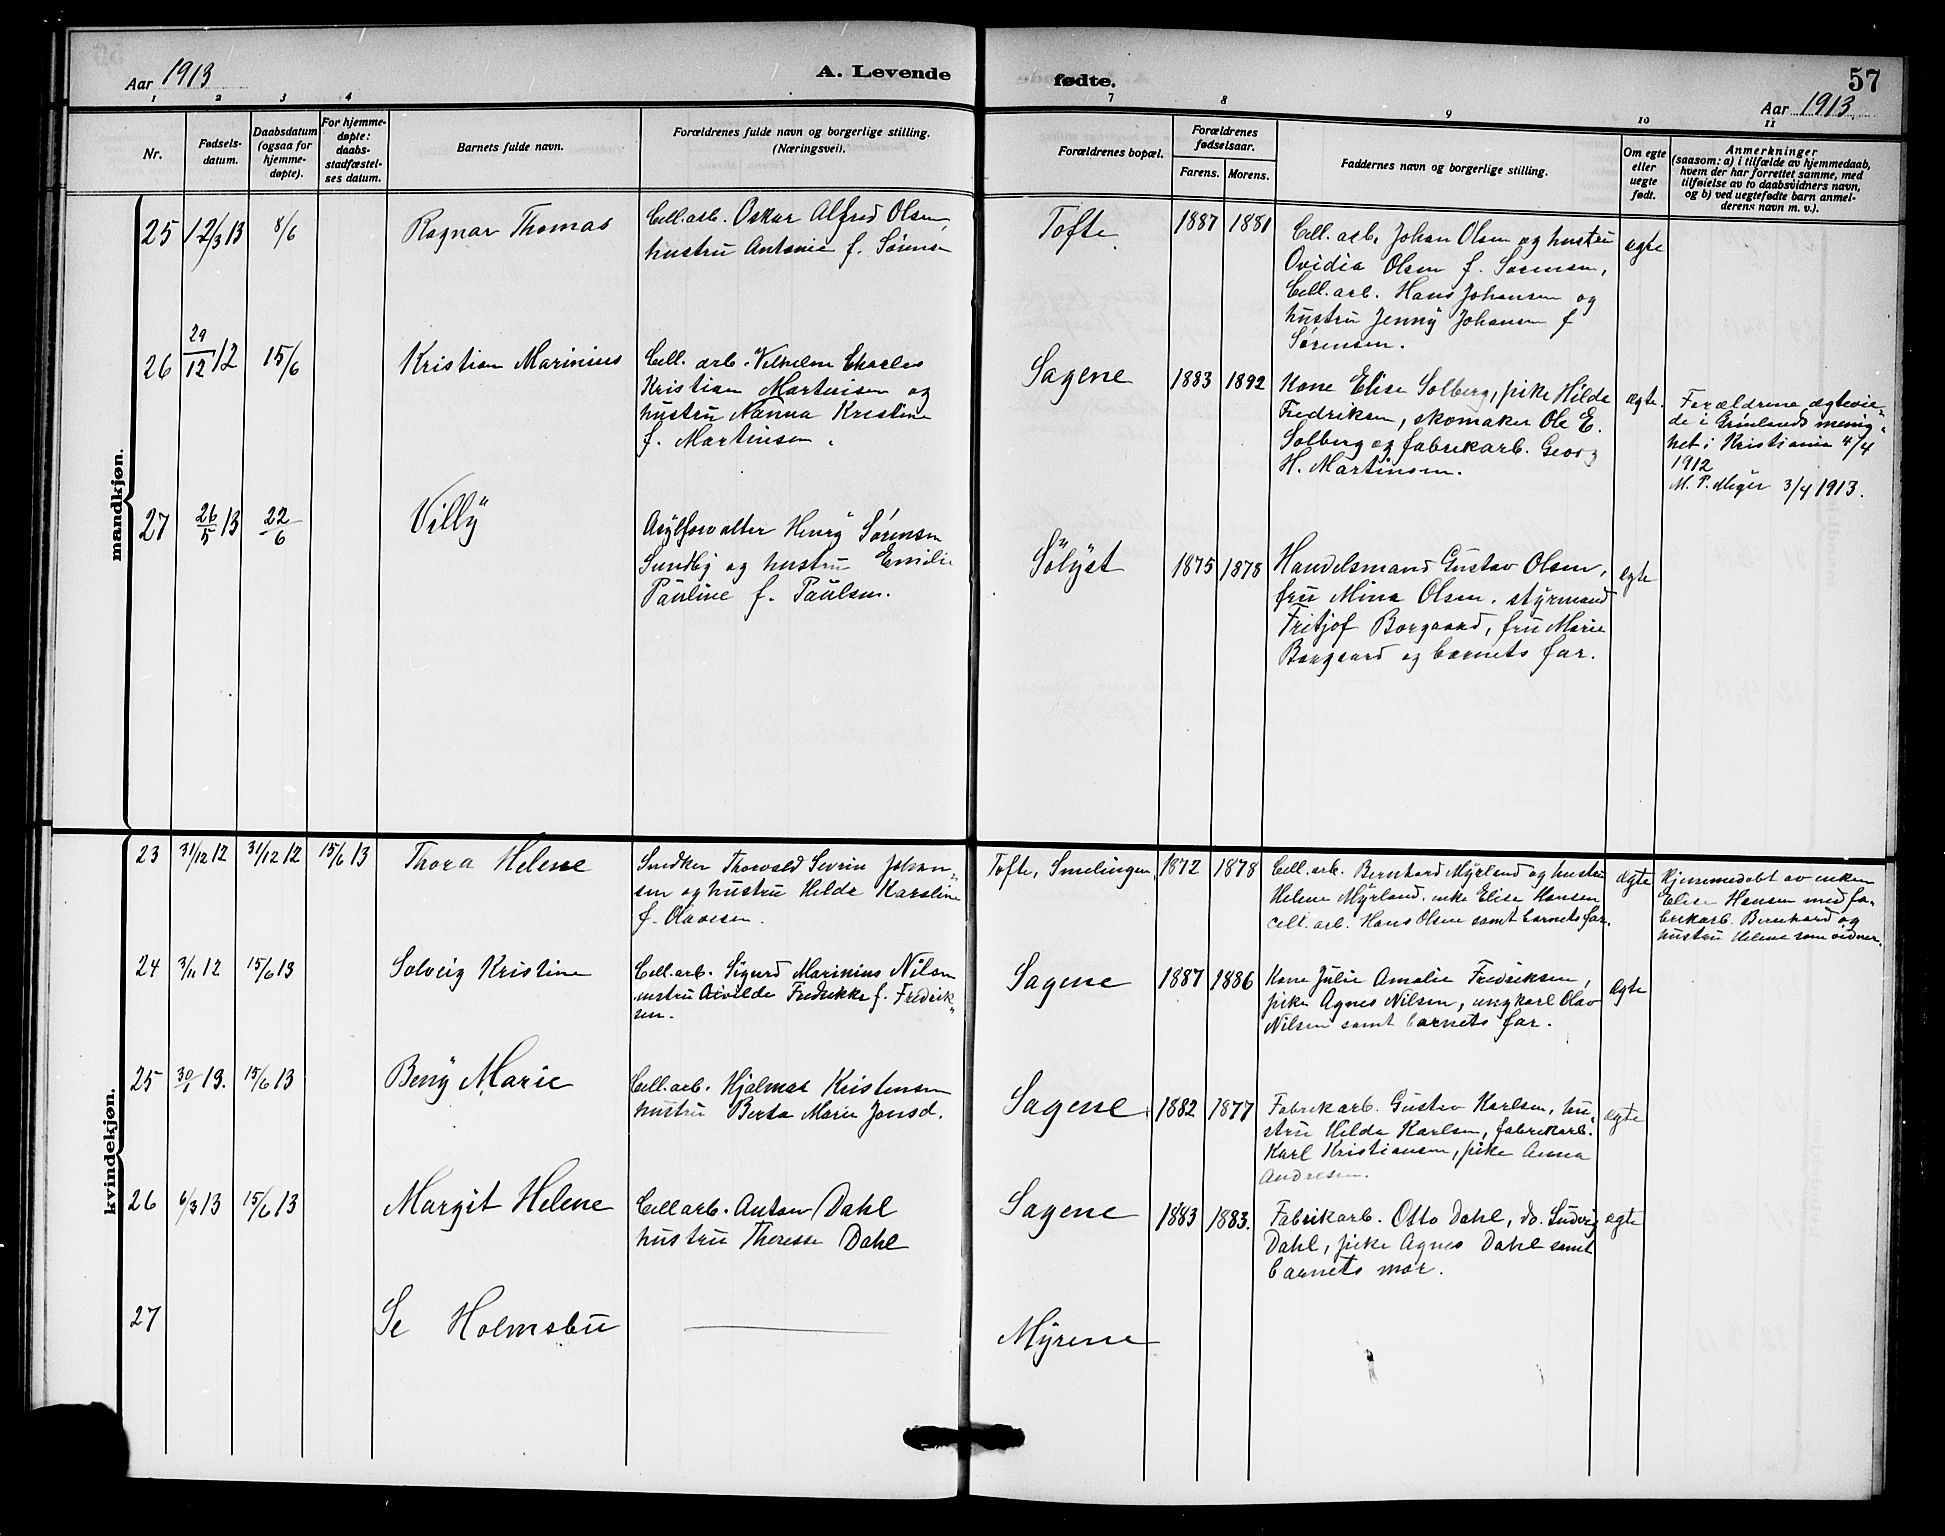 Aar 1913
A. Levende
fødte.
57
Aar 1913
1 2 3 4 7 8 9 10 11
Nr.
Fødsels-
datum.
Daabsdatum
(ogsaa for
hjemme-
døpte).
For hjemme-
døpte:
daabs-
stadfæstel-
ses datum.
Barnets fulde navn.
Forældrenes fulde navn og borgerlige stilling.
(Næringsvei).
Forældrenes bopæl.
Forældrenes
fødselsaar.
Farens. Morens.
Faddernes navn og borgerlige stilling.
Om egte
eller
uegte
født.
Anmerkninger
(saasom: a) i tilfælde av hjemmedaab,
hvem der har forrettet samme, med
tilføielse av to daabsvidners navn,
og b) ved uegtefødte barn anmel-
derens navn m. v.).
mandkjøn.
25 12/3 13 8/6 Ragnar Thomas
Cell. arb. Oskar Alfred Olsen,
hustru Antonie f. Sørens-
Tofte 1887 1881
Cell. arb. Johan Olsen og hustru
Ovidia Olsen f. Sørensen,
Cell. arb. Hans Johansen og
hustru Jenny Johansen f
Sørensen.
egte
26 29/12 12 15/6 Kristian Marinius
Cell. arb. Vilhelm Charles
Kristian Martinsen og
hustru Nanna Kristine
f. Martinsen.
Sagene 1883 1892
Kone Elise Solberg, pike Hilda
Fredriksen, skomaker Ole E.
Solberg og fabrikarb. Georg
H. Martinsen.
ægte.
Forældrene ægtevie-
de i Grønlands menig-
het i Kristiania 4/4
1912
M. P. 3/4 1913.
27 26/5 13 22/6 Villy
Asylforvalter Henry Sørensen
Sundby og hustru Emilie
Pauline f. Paulsen.
Sølyst 1875 1878
Handelsmand Gustav Olsen,
fru Mina Olsen. styrmand
Fritjof Borgaard, fru Marie
Borgaard og barnets far.
egte
kvindekjøn.
23 31/12 12 31/12 12 15/6 13 Thora Helene
Snedker Thorvald Sevrin Johan-
sen og hustru Hilda Karoline
f. Olavesen.
Tofte, Smelingen 1872 1878
Cell. arb. Bernhard Myrland og hustru
Helene Myrland, enke Elise Hansen
cell. arb. Hans Olsen samt barnets far.
ægte
Hjemmedøbt av enken
Elise Hansen med fa-
brikarb. Bernhard og
hustru Helene som vidner.
24 3/11 12 15/6 13 Solveig Kristine
Cell. arb. Sigurd Marinius Nilsen
hustru Alvilde Fredrikke f. Fredrik-
sen.
Sagene 1887 1886
Kone Julie Amalie Fredriksen,
pike Agnes Nilsen, ungkarl Olav
Nilsen samt barnets far.
ægte
25 30/1 13. 15/6 13 Beny Marie
Cell. arb. Hjalmar Kristensen
hustru Berta Marie Jonsd.
Sagene 1882 1877
Fabrikarb. Gustav Karlsen, hu-
stru Hilda Karlsen, fabrikarb.
Karl Kristiansen, pike Anna
Andresen.
ægte
26 6/3 13 15/6 13 Margit Helene
Cell arb. Anton Dahl
hustru Theresse Dahl
Sagene 1883 1883.
Fabrikarb. Otto Dahl, do. Ludvig
Dahl, pike Agnes Dahl samt
barnets mor.
egte
27 Se Holmsbu Myrene